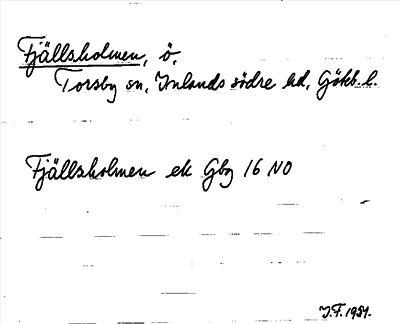 Fjällsholmen, ö,
Torsby sn, Inlands södre hd, Götéb. l.
Fjällsholmen ek Gbg 16 NO
J.F. 1951.